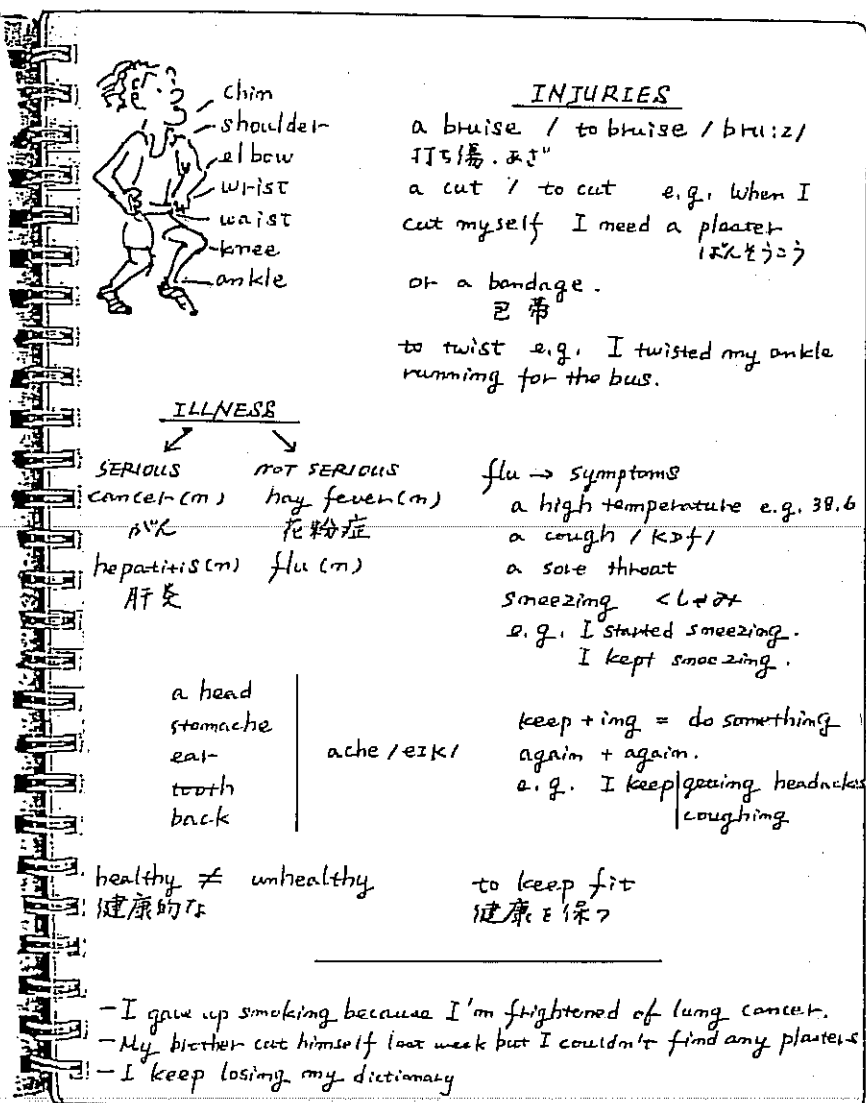 chin
shoulder
elbow
wrist
waist
knee
ankle
INJURIES
a bruise / to bruise / bru:z/
打ち傷.あざ
a cut / to cut e.g. When I
cut myself I need a plaster
ばんそうこう
or a bandage.
包帯
to twist e.g. I twisted my ankle
running for the bus.
ILLNESS
SERIOUS NOT SERIOUS
cancer(n) hay fever(n)
がん 花粉症
hepatitis(n) flu(n)
肝炎
flu → symptoms
a high temperature e.g. 38.6
a cough /kɒf/
a sore throat
sneezing くしゃみ
e.g. I started sneezing.
I kept sneezing.
a head
stomache
ear
tooth
back
ache /eIk/
keep + ing = do something
again + again.
e.g. I keep getting headaches
coughing
healthy ≠ unhealthy
健康的な
to keep fit
健康を保つ
- I gave up smoking because I'm frightened of lung cancer.
- My brother cut himself last week but I couldn't find any plasters
- I keep losing my dictionary